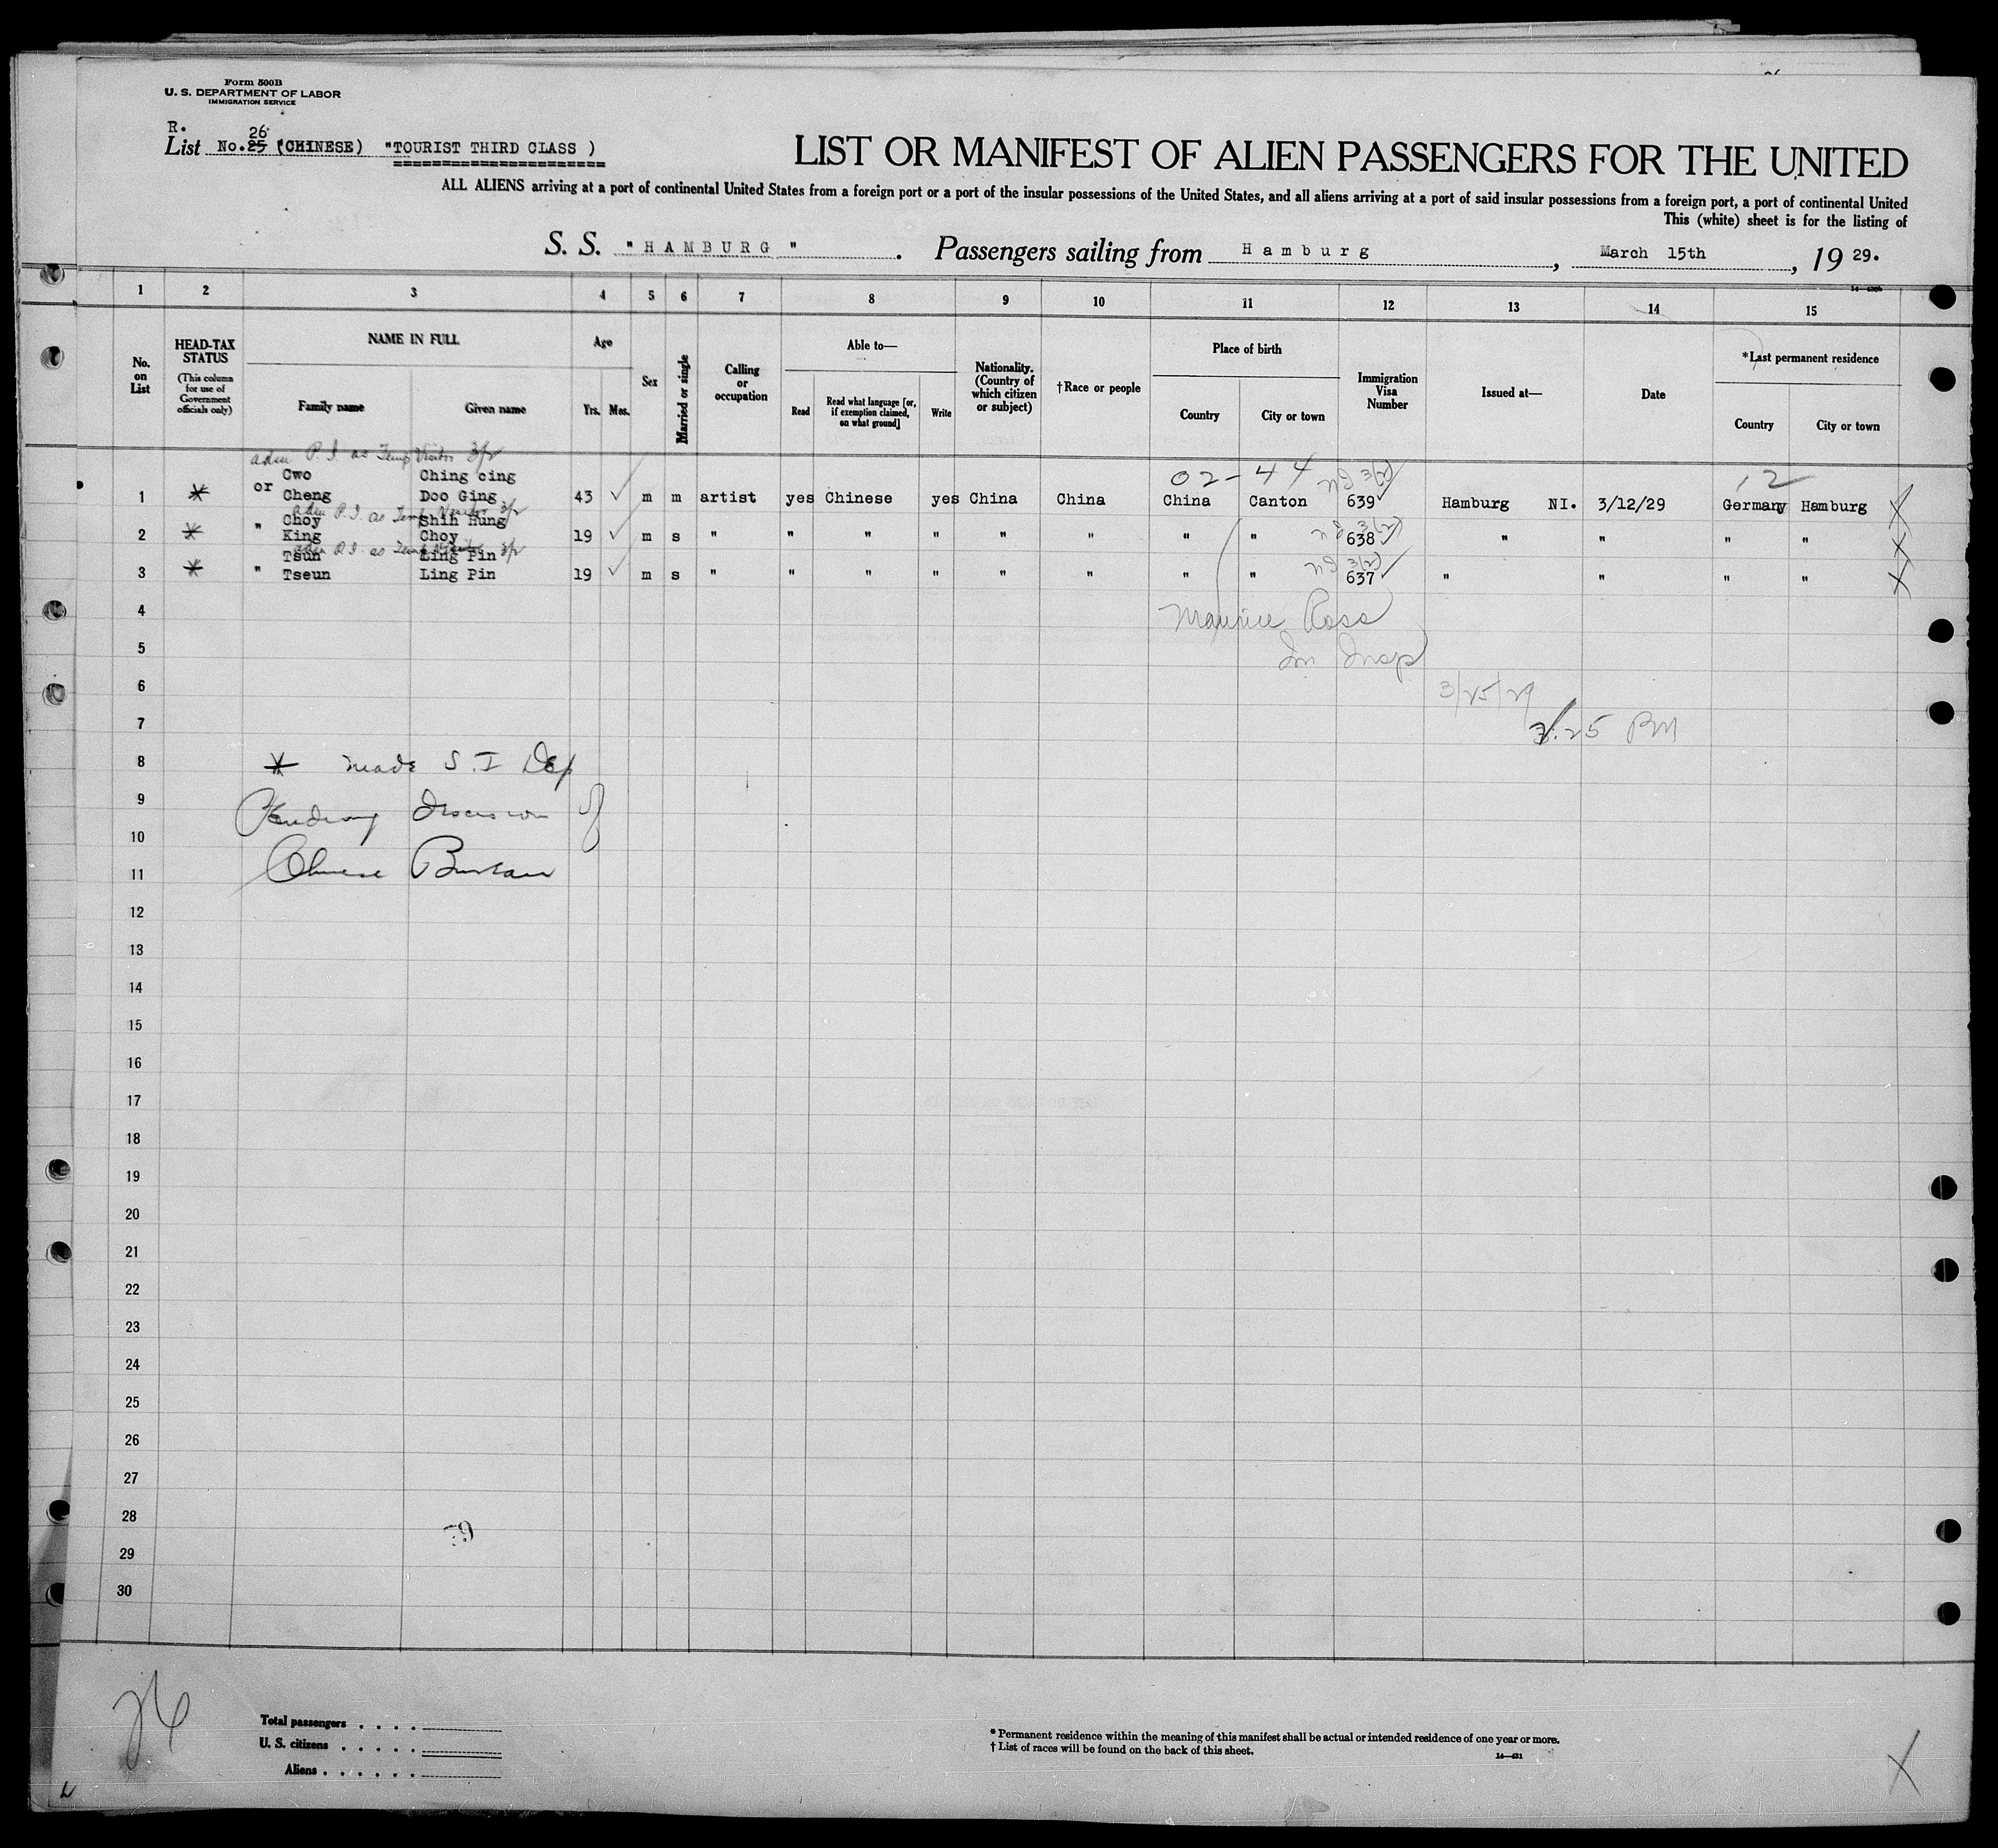 Form 500B
U. S. DEPARTMENT OF LABOR
IMMIGRATION SERVICE
R.
26
List No. 25 (CHINESE) "TOURIST THIRD CLASS )
LIST OR MANIFEST OF ALIEN PASSENGERS FOR THE UNITED
ALL ALIENS arriving at a port of continental United States from a foreign port or a port of the insular possessions of the United States, and all aliens arriving at a port of said insular possessions from a foreign port, a port of continental United
This (white) sheet is for the listing of
S. S. "HAMBURG" . Passengers sailing from Hamburg , March 15th , 19 29.
1 2 3 4 5 6 7 8 9 10 11 12 13 14 15
No. on List
HEAD-TAX STATUS (This column for use of Government officials only)
NAME IN FULL Family name Given name
Age Yrs. Mos.
Sex
Married or single
Calling or occupation
Able to— Read Read what language [or, if exemption claimed, on what ground] Write
Nationality. (Country of which citizen or subject)
†Race or people
Place of birth Country City or town
Immigration Visa Number
Issued at—
Date
*Last permanent residence Country City or town
adm P.I. as Temp Visitor
Cwo Ching cing 02-44 12
1 * or Cheng Doo Ging 43 ✓ m m artist yes Chinese yes China China China Canton 639 ✓ Hamburg NI. 3/12/29 Germany Hamburg X
adm P.I. as Temp Visitor
Choy Shih Hung
2 * " King Choy 19 ✓ m s " " " " " " " " 638 " " " " X
adm P.I. as Temp Visitor
Tsun Ling Pin
3 * " Tseun Ling Pin 19 ✓ m s " " " " " " " " 637 ✓ " " " " X
4 Maurice Ross
5 Im Insp
6 3/25/29
7 25 PM
8 * made S.I Dep
9 Pending Decision of
10
11 Chinese Bureau
12
13
14
15
16
17
18
19
20
21
22
23
24
25
26
27
28
29
30
26
Total passengers . . . .
U. S. citizens . . . . .
Aliens . . . . . .
* Permanent residence within the meaning of this manifest shall be actual or intended residence of one year or more.
† List of races will be found on the back of this sheet.
14—431
X